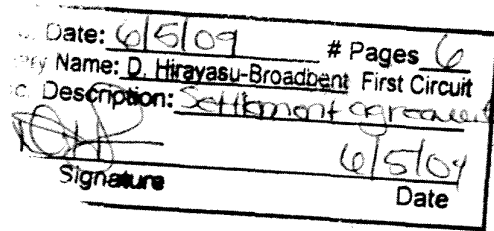 Date: 6/5/09 # Pages 6
ry Name: D. Hirayasu-Broadbent First Circuit
c. Description: Settlement agreement
6/5/09
Signature Date